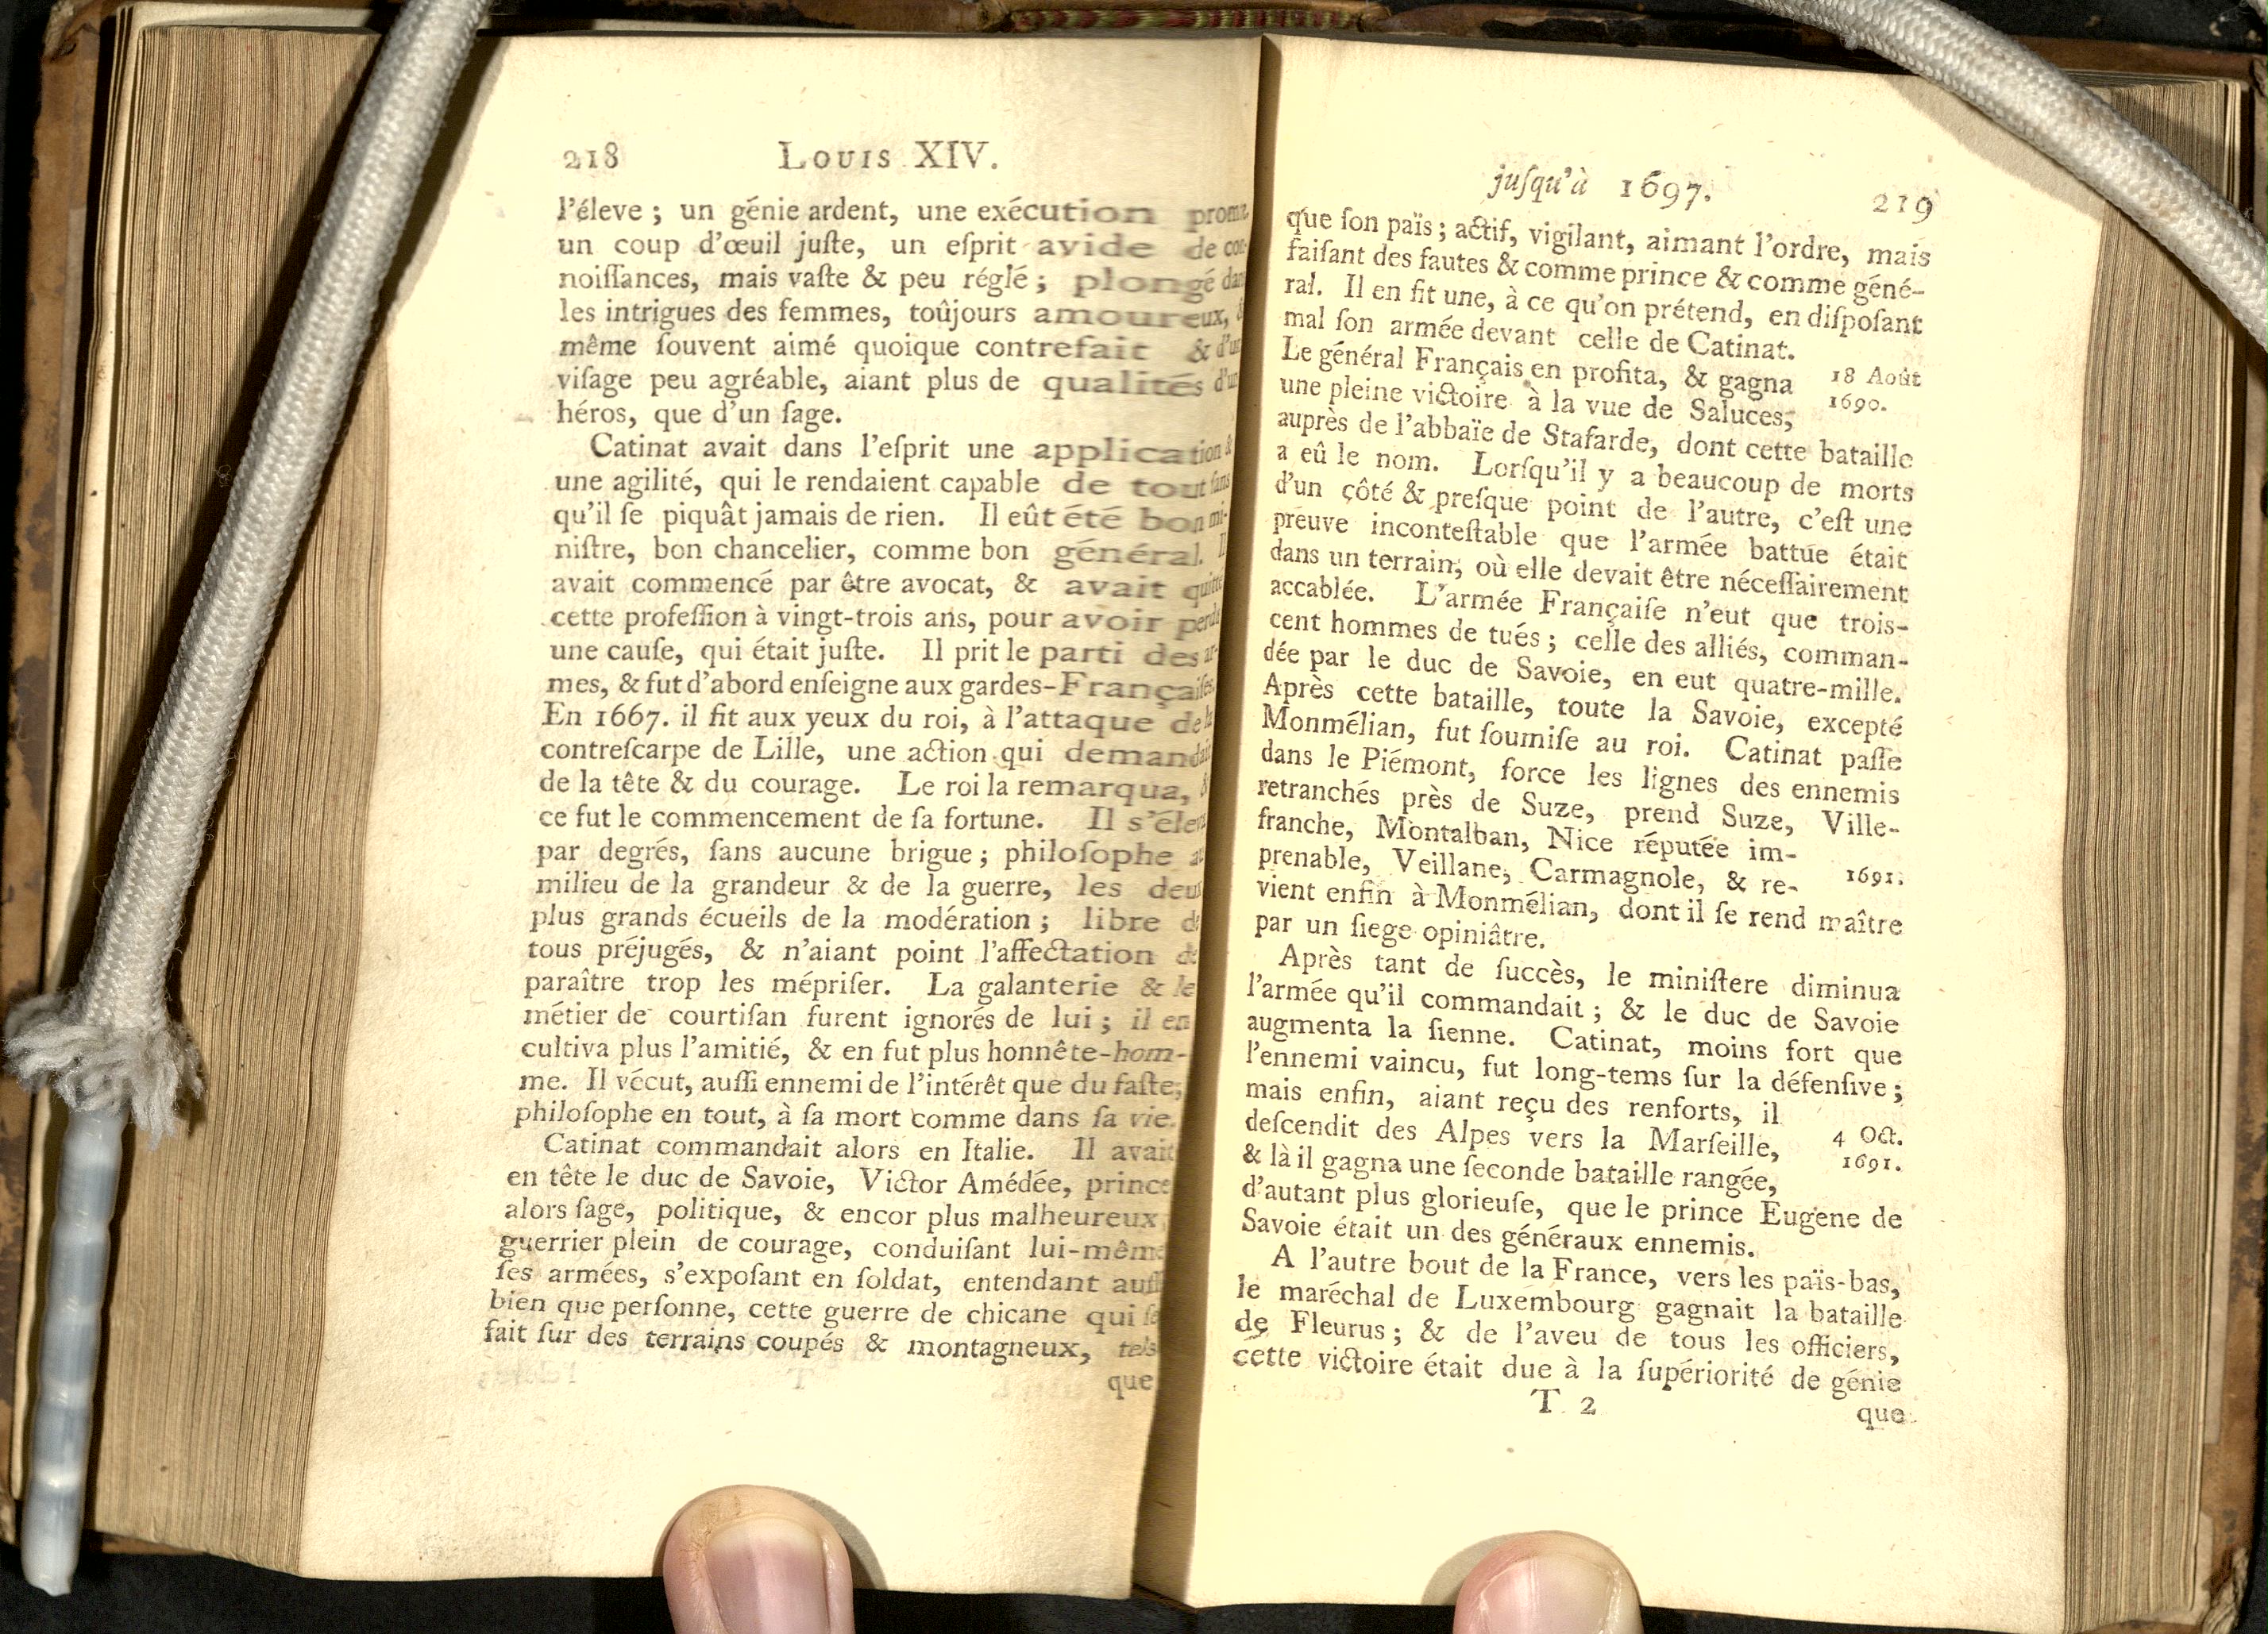 218 LOUIS XIV.
l'éleve ; un génie ardent, une exécution
un coup d'œuil juſte, un eſprit avide de con-
noiſſances, mais vaſte & peu réglé ; plongé dans
les intrigues des femmes, toûjours amoureux, &
même ſouvent aimé quoique contrefait & d'un
viſage peu agréable, aiant plus de qualités d'un
héros, que d'un ſage.
Catinat avait dans l'eſprit une application &
une agilité, qui le rendaient capable de tout ſans
qu'il ſe piquât jamais de rien. Il eût été bon mi-
niſtre, bon chancelier, comme bon général. Il
avait commencé par être avocat, & avait quitté
cette profeſſion à vingt-trois ans, pour avoir perdu
une cauſe, qui était juſte. Il prit le parti des ar-
mes, & fut d'abord enſeigne aux gardes-Françaiſes.
En 1667. il fit aux yeux du roi, à l'attaque de la
contreſcarpe de Lille, une action qui demandait
de la tête & du courage. Le roi la remarqua, &
ce fut le commencement de ſa fortune. Il s'éleva
par degrés, ſans aucune brigue ; philoſophe au
milieu de la grandeur & de la guerre, les deux
plus grands écueils de la modération ; libre de
tous préjugés, & n'aiant point l'affectation de
paraître trop les mépriſer. La galanterie & le
métier de courtiſan furent ignorés de lui ; il en
cultiva plus l'amitié, & en fut plus honnête-hom-
me. Il vécut, auſſi ennemi de l'intérêt que du faſte;
philoſophe en tout, à ſa mort comme dans ſa vie.
Catinat commandait alors en Italie. Il avait
en tête le duc de Savoie, Victor Amédée, prince
alors ſage, politique, & encor plus malheureux;
guerrier plein de courage, conduiſant lui-même
ſes armées, s'expoſant en ſoldat, entendant auſſi
bien que perſonne, cette guerre de chicane qui ſe
fait ſur des terrains coupés & montagneux, tels
que
juſqu'à 1697. 219
que ſon païs ; actif, vigilant, aimant l'ordre, mais
faiſant des fautes & comme prince & comme géné-
ral. Il en fit une, à ce qu'on prétend, en diſpoſant
mal ſon armée devant celle de Catinat.
Le général Français en profita, & gagna 18 Août
une pleine victoire à la vue de Saluces, 1690.
auprès de l'abbaïe de Stafarde, dont cette bataille
a eû le nom. Lorſqu'il y a beaucoup de morts
d'un çôté & preſque point de l'autre, c'eſt une
preuve inconteſtable que l'armée battue était
dans un terrain, où elle devait être néceſſairement
accablée. L'armée Françaiſe n'eut que trois-
cent hommes de tués ; celle des alliés, comman-
dée par le duc de Savoie, en eut quatre-mille.
Après cette bataille, toute la Savoie, excepté
Monmélian, fut ſoumiſe au roi. Catinat paſſe
dans le Piémont, force les lignes des ennemis
retranchés près de Suze, prend Suze, Ville-
franche, Montalban, Nice réputée im-
prenable, Veillane, Carmagnole, & re- 1691.
vient enfin à Monmélian, dont il ſe rend maître
par un ſiege opiniâtre.
Après tant de ſuccès, le miniſtere diminua
l'armée qu'il commandait ; & le duc de Savoie
augmenta la ſienne. Catinat, moins fort que
l'ennemi vaincu, fut long-tems ſur la défenſive ;
mais enfin, aiant reçu des renforts, il
deſcendit des Alpes vers la Marſeille, 4 Oct.
& là il gagna une ſeconde bataille rangée, 1691.
d'autant plus glorieuſe, que le prince Eugene de
Savoie était un des généraux ennemis.
A l'autre bout de la France, vers les païs-bas,
le maréchal de Luxembourg gagnait la bataille
de Fleurus ; & de l'aveu de tous les officiers,
cette victoire était due à la ſupériorité de génie
T 2 que